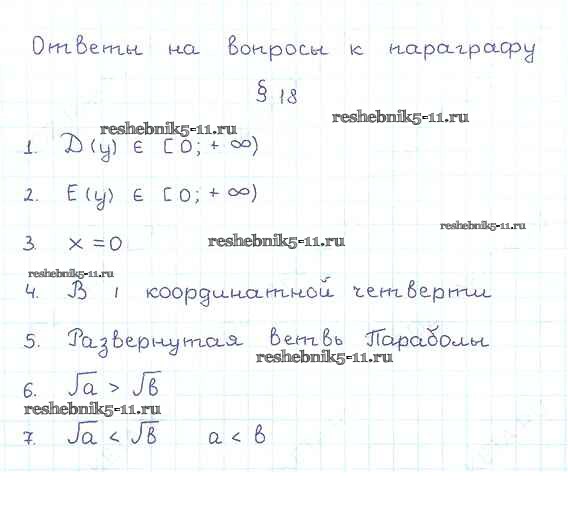 Ответы на вопросы к параграфу
§ 18
reshebnik5-11.ru
reshebnik5-11.ru
1. D(y) ∈ [0; +∞)
2. E(y) ∈ [0; +∞)
reshebnik5-11.ru
3. x = 0
reshebnik5-11.ru
reshebnik5-11.ru
4. В 1 координатной четверти
5. Развернутая ветвь Параболы
reshebnik5-11.ru
6. √a > √b
reshebnik5-11.ru
7. √a < √b a < b